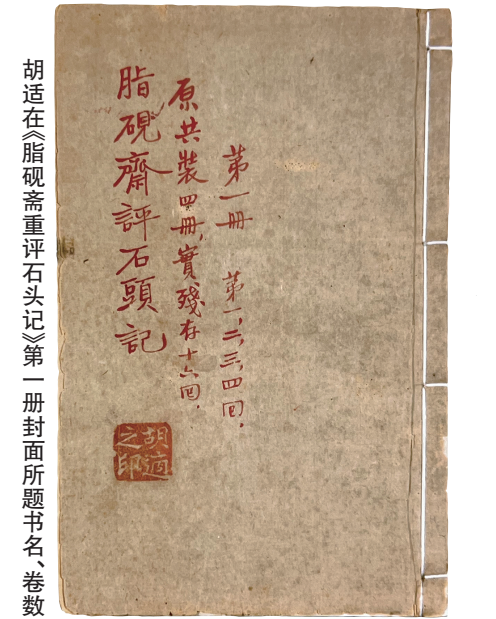 第一册　第一,二,三,四回,
原共裝四冊,實殘存十六回,
脂硯齋評石頭記
胡適之印
胡适在《脂砚斋重评石头记》第一册封面所题书名、卷数